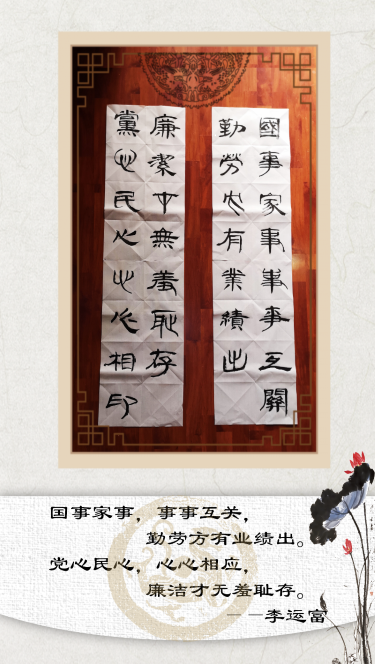 國事家事事事互關
勤勞方有業績出
黨心民心心心相印
廉潔才無羞耻存
国事家事，事事互关，
勤劳方有业绩出。
党心民心，心心相应，
廉洁才无羞耻存。
——李运富